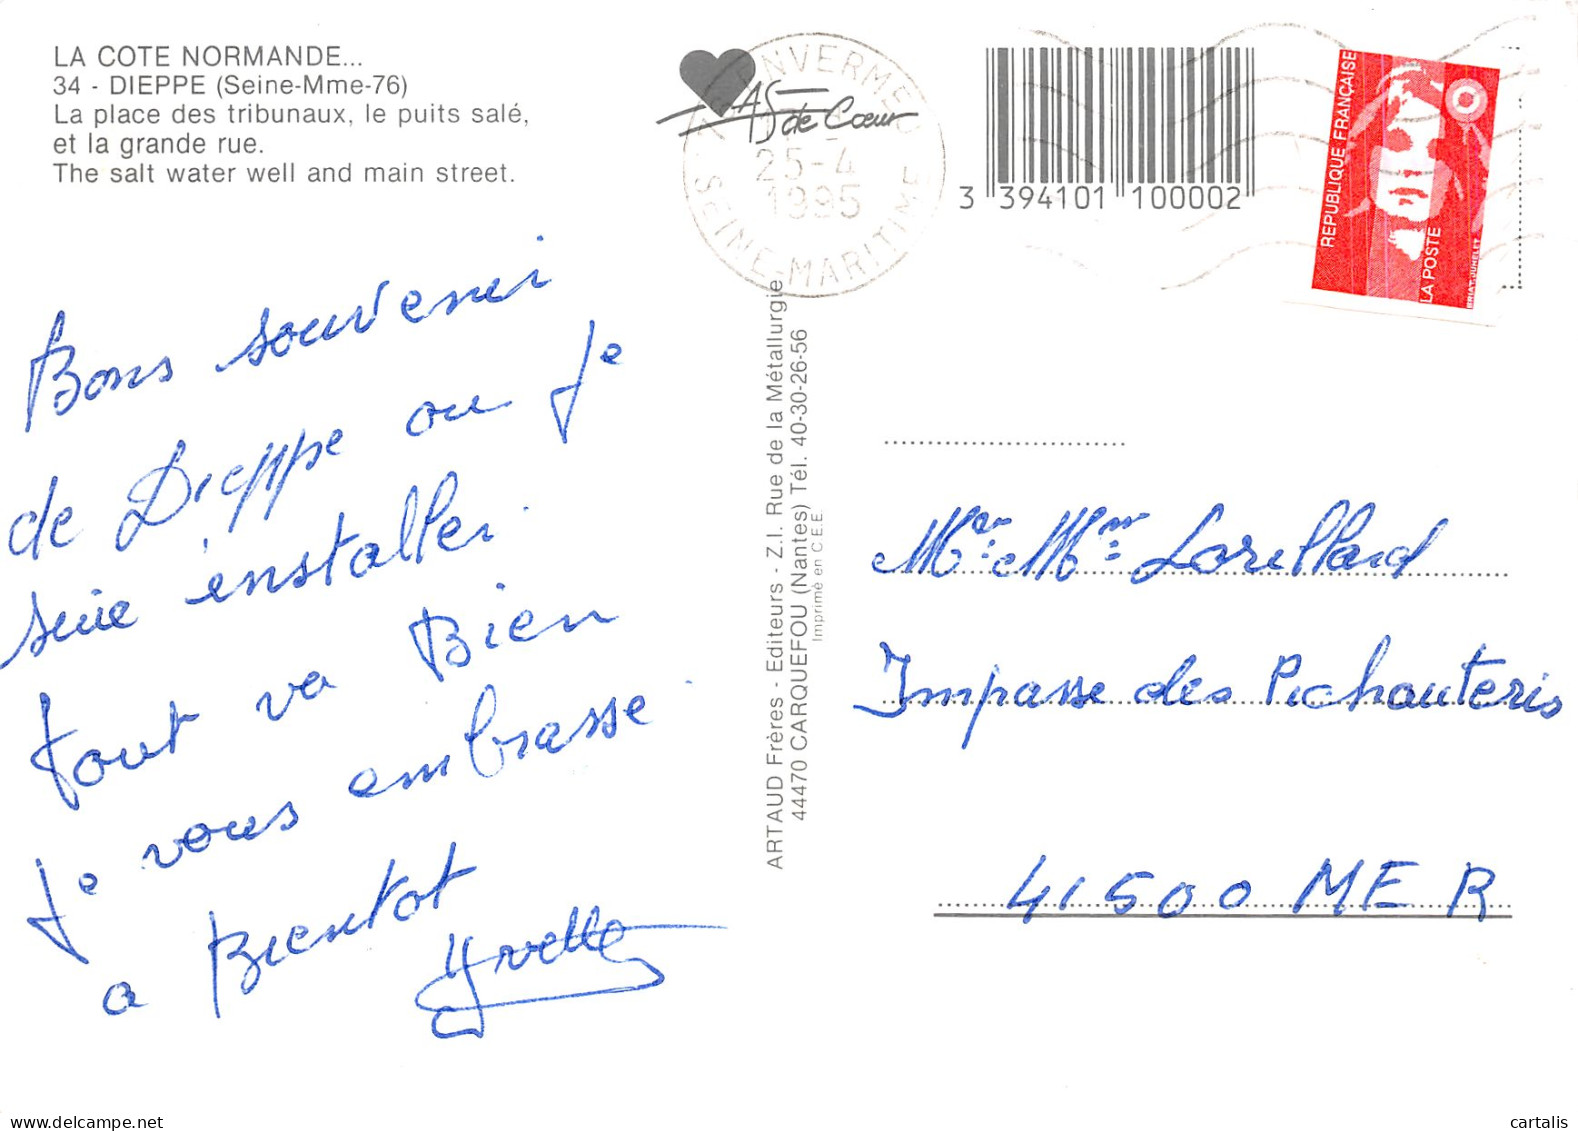 LA COTE NORMANDE...
34 - DIEPPE (Seine-Mme-76)
La place des tribunaux, le puits salé,
et la grande rue.
The salt water well and main street.
AS de Cœur
ENVERMEU
25-4
1995
SEINE-MARITIME
3 394101 100002
REPUBLIQUE FRANÇAISE
LA POSTE
BRIAT-JUMELET
Bons souvenir
de Dieppe ou je
suie installer.
tout va Bien
je vous embrasse.
a Bientot
Yvette
ARTAUD Frères - Editeurs - Z.I. Rue de la Métallurgie
44470 CARQUEFOU (Nantes) Tél. 40-30-26-56
Imprimé en C.E.E.
Mr Mme Lorillard
Impasse des Pichauteris
41500 MER
cartalis
delcampe.net